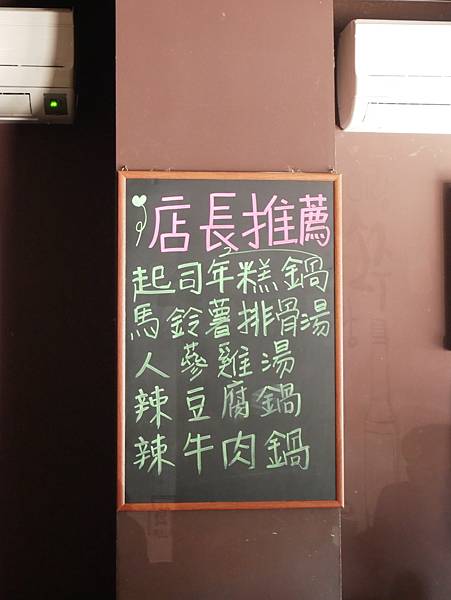 店長推薦
起司年糕鍋
馬鈴薯排骨湯
人蔘雞湯
辣豆腐鍋
辣牛肉鍋